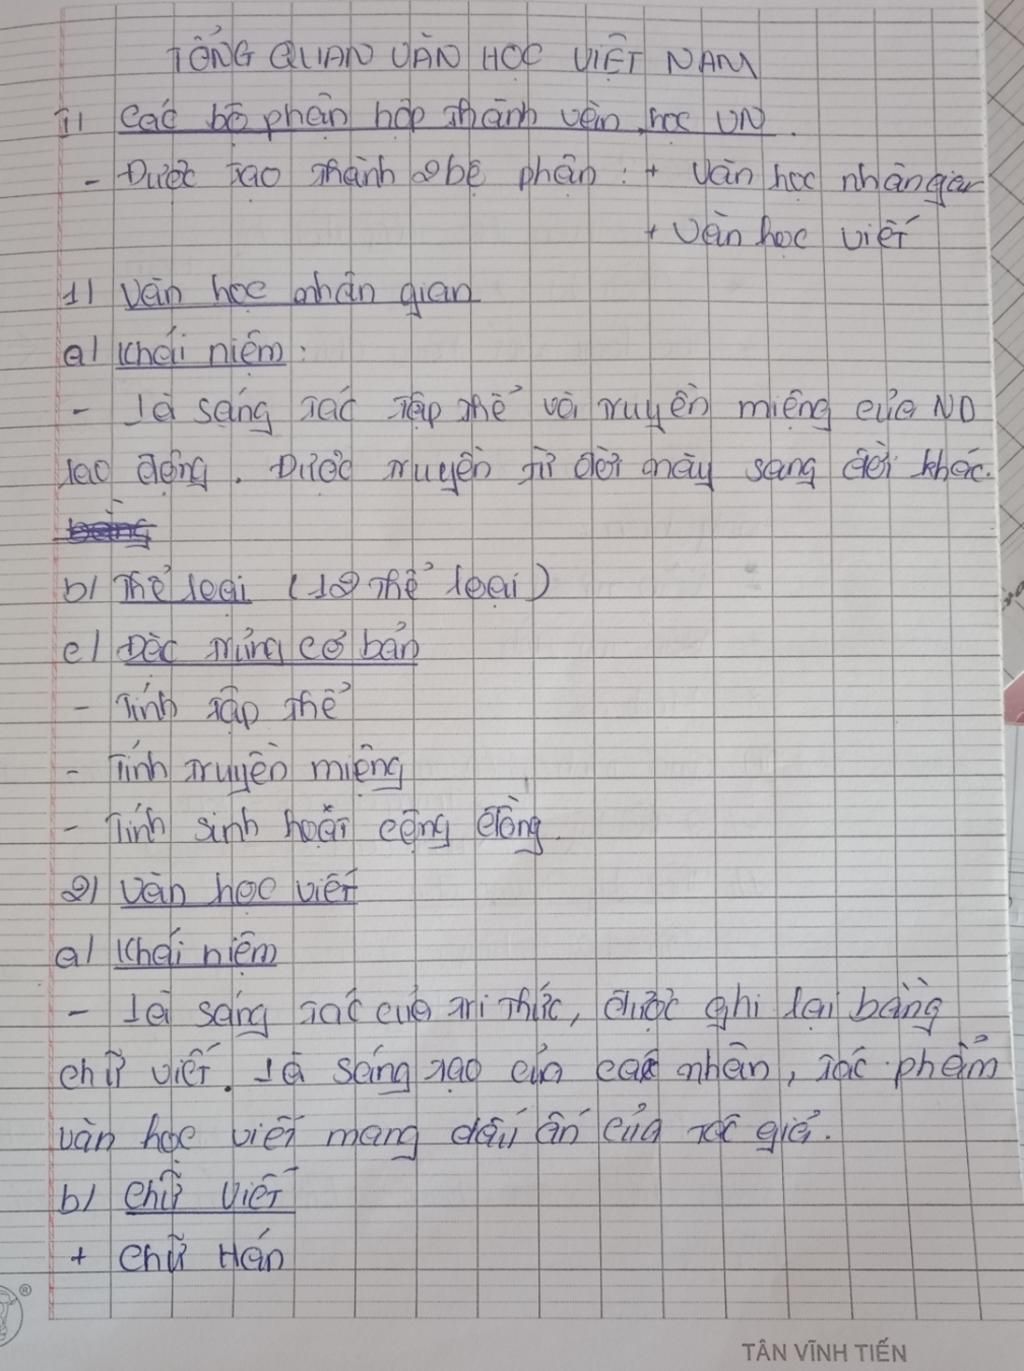 TỔNG QUAN VĂN HỌC VIỆT NAM
I) Các bộ phận hợp thành văn học VN.
- Được tạo thành 2 bộ phận : + Văn học nhân gian
+ Văn học viết
1) Văn học nhân gian
a) Khái niệm :
- Là sáng tác tập thể và truyền miệng của ND
lao động. Được truyền từ đời này sang đời khác.
b) Thể loại (12 thể loại)
c) Đặc trưng cơ bản
- Tính tập thể
- Tính truyền miệng
- Tính sinh hoạt cộng đồng.
2) Văn học viết
a) Khái niệm
- Là sáng tác của tri thức, được ghi lại bằng
chữ viết. Là sáng tạo của cá nhân, tác phẩm
văn học viết mang dấu ấn của tác giả.
b) Chữ viết
+ Chữ Hán
TÂN VĨNH TIẾN